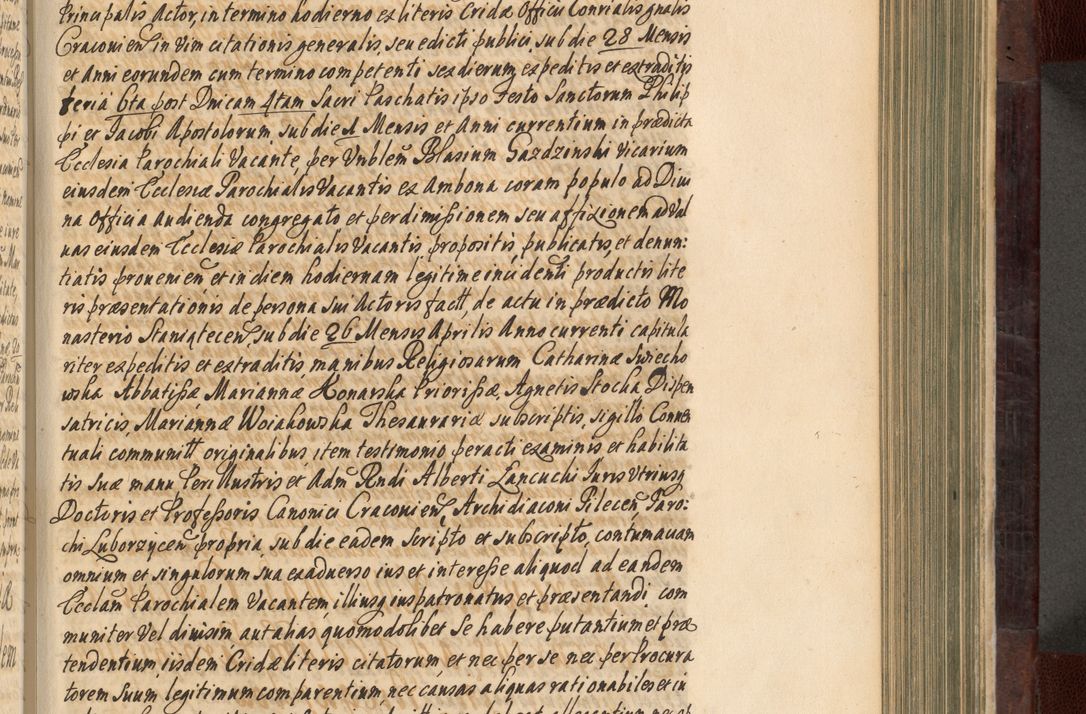 Principalis Actor, in termino hodierno ex literis Cridæ Officii Conrialis gnalis
Cracouien in vim citationis generalis, seu edicti publici, sub die 28 Mensis
et Anni eorundem cum termino competenti sex dierum, expeditis et extraditis
feria 6ta post Dnicam 4tam Sacri Paschatis ipso Festo Sanctorum Philip
pi et Jacobi Apostolorum sub die 1 Mensis et Anni currentium in prædicta
Ecclesia Parochiali Vacante, per Vnblem Blasium Gazdzinski Vicarium
eiusdem Ecclesiæ Parochialis Vacantis ex Ambona coram populo ad Diui
na Officia audienda congregato et per dimißionem seu affixionem ad Val
uas eiusdem Ecclesiæ Parochialis Vacantis propositis, publicatis, et denun:
tiatis prouenien et in diem hodiernam legitime incidenti productis lite
ris præsentationis de persona sui Actoris factt, de actu in prædicto Mo
nasterio Staniątecen, sub die 26 Mensis Aprilis Anno currenti capitula
riter expeditis et extraditis, manibus Religiosarum Catharinæ Swiecho
wska Abbatißæ, Mariannæ Konarska Priorißæ, Agnetis Stocka Dispen
satricis, Mariannæ Woiakowska Thesaurariæ subscriptis, sigillo Conuen
tuali communitt originalibus, item testimonio peracti examinis et habilita
tis suæ manu Per Illustris et Adm Rndi Alberti Łancucki Iuris Vtriusq
Doctoris et Profeßoris Canonici Cracouien, Archidiaconi Pilecen, Paro:
chi Luborzycen propria, sub die eadem scripto et subscripto, contumaciam
omnium et singulorum sua ex aduerso ius et intereße aliquod ad eandem
Ecclam Parochialem Vacantem, illiusq ius patronatus et præsentandi com
muniter Vel diuisim, aut alias quomodolibet se habere putantium et præ
tendentium, iisdem Cridæ literis citatorum, et nec per se nec per Procura
torem suum legitimum comparentium, nec causas aliquas rationabiles et iu